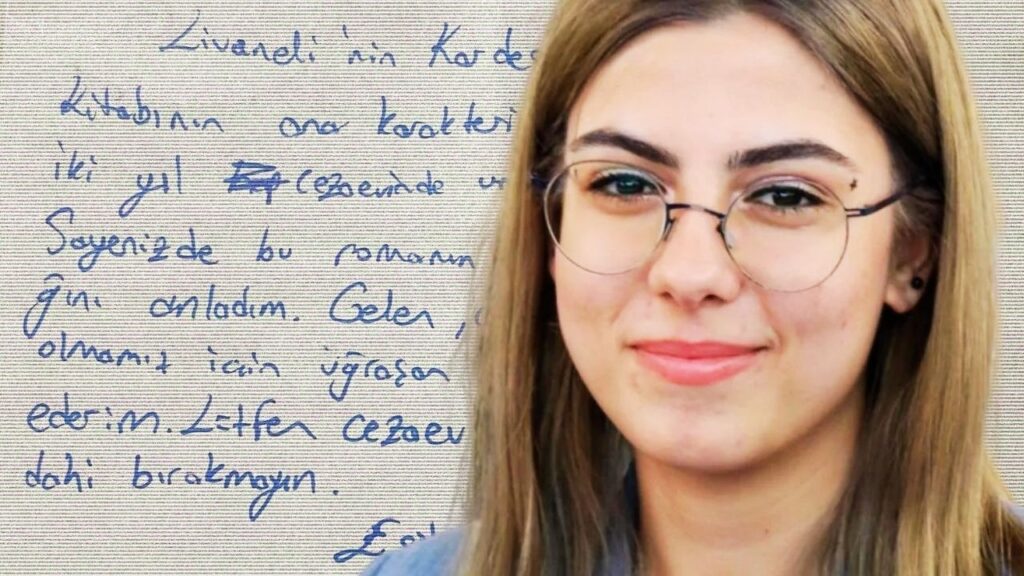 Livaneli'nin Kardeş
kitabının ana karakteri
iki yıl cezaevinde
Sayenizde bu romanın
ğını anladım. Gelen
olmamız için uğraşan
ederim. Lütfen cezaev
dahi bırakmayın.